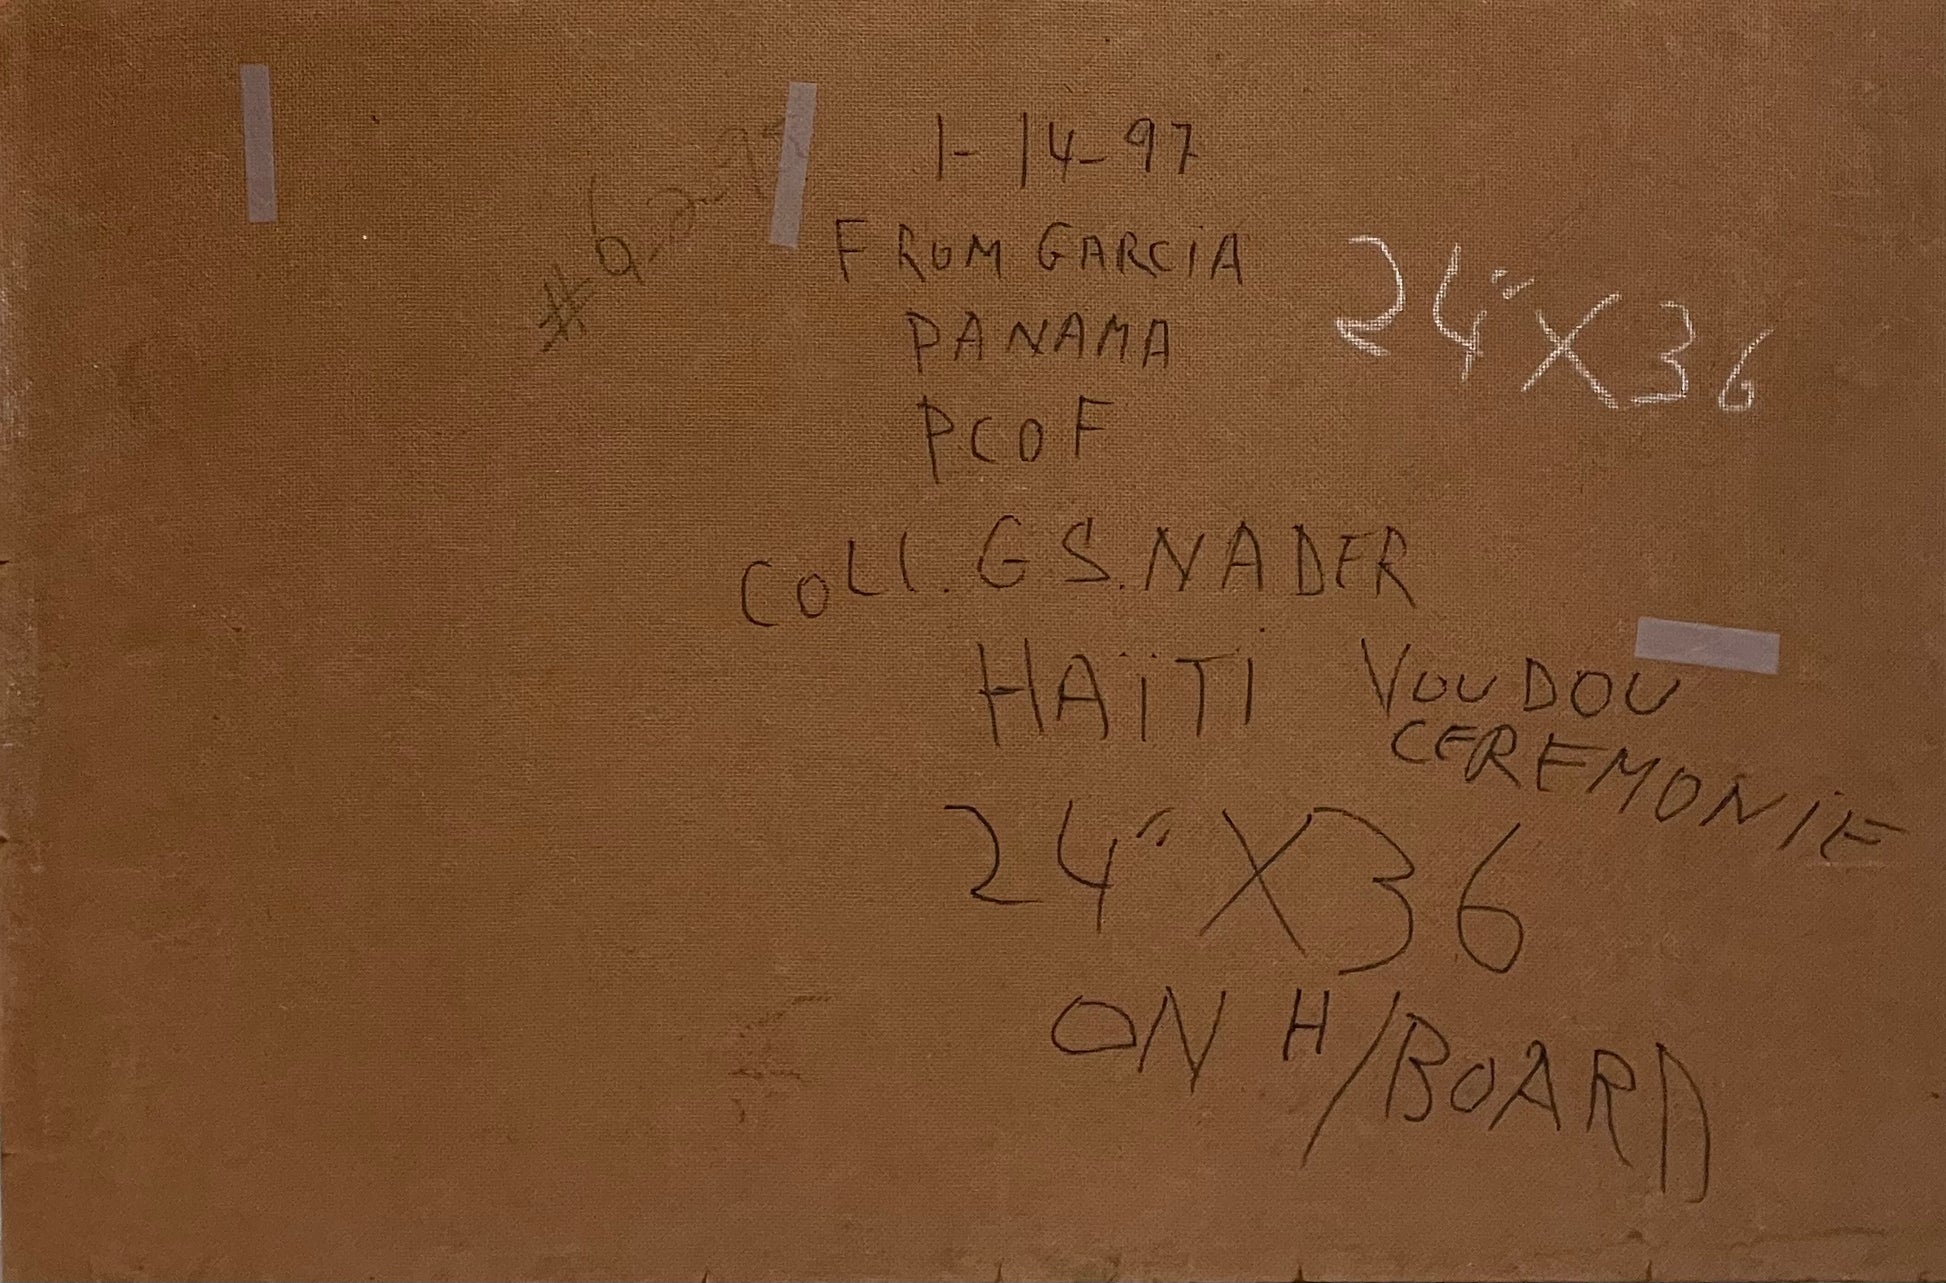 1-14-97
FROM GARCIA
PANAMA
PCOF
24" X 36
COLL. G.S. NADER
HAÏTI
VOUDOU
CEREMONIE
24" X 36
ON H/BOARD